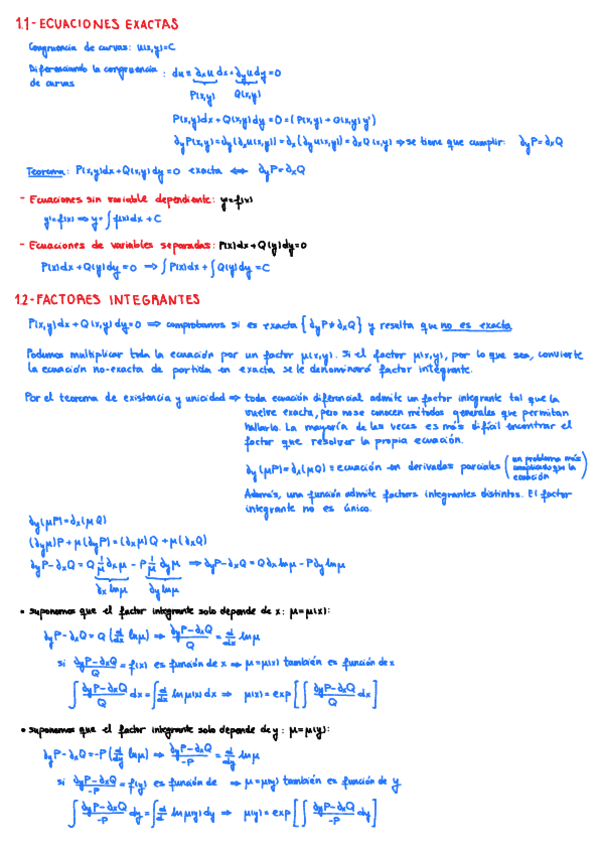 1.1- ECUACIONES EXACTAS
Congruencia de curvas: u(x,y)=C
Diferenciando la congruencia de curvas : du = ∂xu dx + ∂yu dy = 0
P(x,y) Q(x,y)
P(x,y)dx + Q(x,y)dy = 0 = (P(x,y) + Q(x,y)y')
∂yP(x,y) = ∂y(∂xu(x,y)) = ∂x(∂yu(x,y)) = ∂xQ(x,y) ⇒ se tiene que cumplir: ∂yP=∂xQ
Teorema: P(x,y)dx + Q(x,y)dy = 0 exacta ⇔ ∂yP=∂xQ
- Ecuaciones sin variable dependiente: y'=f(x)
y'=f(x) ⇒ y = ∫ f(x)dx + C
- Ecuaciones de variables separadas: P(x)dx + Q(y)dy=0
P(x)dx + Q(y)dy = 0 ⇒ ∫P(x)dx + ∫Q(y)dy = C
1.2- FACTORES INTEGRANTES
P(x,y)dx + Q(x,y)dy=0 ⇒ comprobamos si es exacta {∂yP≠∂xQ} y resulta que no es exacta
Podemos multiplicar toda la ecuación por un factor μ(x,y). Si el factor μ(x,y), por lo que sea, convierte
la ecuación no-exacta de partida en exacta se le denominará factor integrante.
Por el teorema de existencia y unicidad ⇒ toda ecuación diferencial admite un factor integrante tal que la
vuelve exacta, pero no se conocen métodos generales que permitan
hallarlo. La mayoría de las veces es más difícil encontrar el
factor que resolver la propia ecuación.
∂y(μP)=∂x(μQ) = ecuación en derivados parciales (un problema más complicado que la ecuación)
Además, una función admite factores integrantes distintos. El factor
integrante no es único.
∂y(μP)=∂x(μQ)
(∂yμ)P + μ(∂yP) = (∂xμ)Q + μ(∂xQ)
∂yP-∂xQ = Q 1/μ ∂xμ - P 1/μ ∂yμ ⇒ ∂yP-∂xQ = Q∂x lnμ - P∂y lnμ
∂x lnμ ∂y lnμ
• suponemos que el factor integrante solo depende de x: μ=μ(x):
∂yP-∂xQ = Q (d/dx lnμ) ⇒ (∂yP-∂xQ)/Q = d/dx lnμ
si (∂yP-∂xQ)/Q = f(x) es función de x ⇒ μ=μ(x) también es función de x
∫ (∂yP-∂xQ)/Q dx = ∫ d/dx ln μ(x) dx ⇒ μ(x) = exp [∫ (∂yP-∂xQ)/Q dx]
• suponemos que el factor integrante solo depende de y: μ=μ(y):
∂yP-∂xQ = -P (d/dy lnμ) ⇒ (∂yP-∂xQ)/-P = d/dy lnμ
si (∂yP-∂xQ)/-P = f(y) es función de ⇒ μ=μ(y) también es función de y
∫ (∂yP-∂xQ)/-P dy = ∫ d/d ln μ(y) dy ⇒ μ(y) = exp [∫ (∂yP-∂xQ)/-P dy]